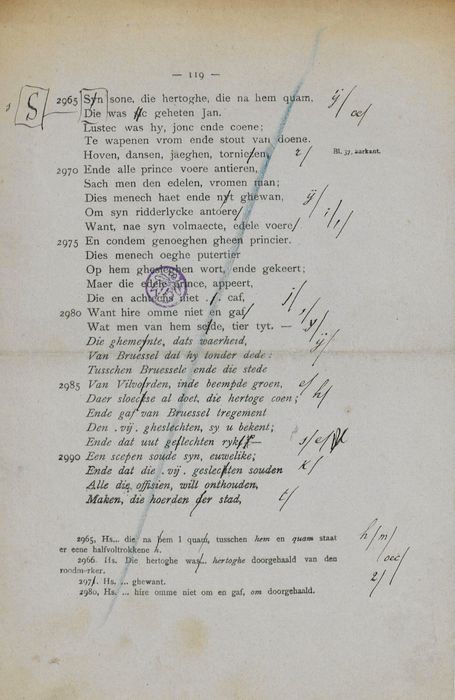 — 119 —
S 2965 Syn sone, die hertoghe, die na hem quam, ij/
Die was geheten Jan. oe/
Lustec was hy, jonc ende coene;
Te wapenen vrom ende stout van doene.
Hoven, dansen, jaeghen, tornieren, 2/ Bl. 37, aarkant.
2970 Ende alle prince voere antieren,
Sach men den edelen, vromen man;
Dies menech haet ende nyt ghewan, ij/
Om syn ridderlycke antoere
Want, nae syn volmaecte, edele voere
2975 En condem genoeghen gheen princier.
Dies menech oeghe putertier
Op hem ghesleghen wort, ende gekeert;
Maer die edele prince, appeert,
Die en achtechs niet .1. caf, j/
2980 Want hire omme niet en gaf
Wat men van hem seide, tier tyt. — y/
Die ghemeynte, dats waerheid, ij/
Van Bruessel dat hy tonder dede:
Tusschen Bruessele ende die stede
2985 Van Vilvorden, inde beempde groen, e/
Daer sloecse al doet, die hertoge coen; h/
Ende gaf van Bruessel tregement
Den .vij. gheslechten, sy u bekent;
Ende dat uut geslechten ryk — s/e/
2990 Een scepen soude syn, euwelike;
Ende dat die .vij. geslechten souden k/
Alle die offisien, wilt onthouden,
Maken, die hoerden der stad, t/
2965, Hs... die na hem 1 quam, tusschen hem en quam staat h/m/
er eene halfvoltrokkene h.
2966. Hs. Die hertoghe was... hertoghe doorgehaald van den oec/
roodmerker.
297 . Hs. ... ghewant. 2/
2980, Hs. ... hire omme niet om en gaf, om doorgehaald.